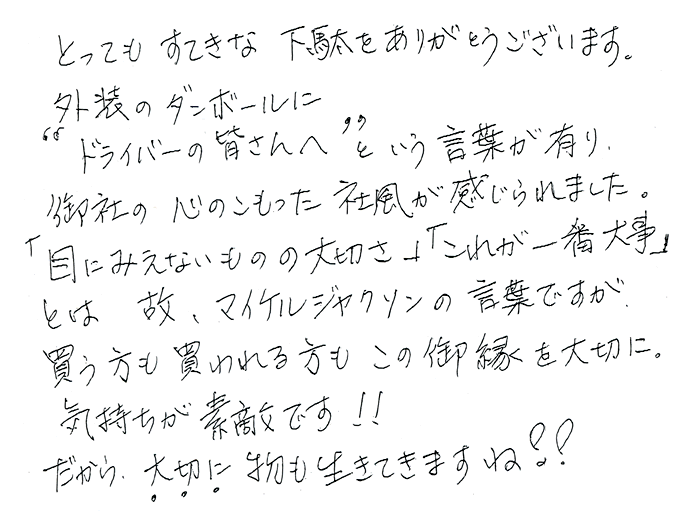 とっても すてきな 下駄をありがとうございます。
外装の ダンボールに
“ドライバーの 皆さんへ”という 言葉が 有り、
御社の 心のこもった 社風が 感じられました。
「目にみえないものの大切さ」「これが一番大事」
とは 故、マイケルジャクソンの 言葉ですが、
買う方も 買われる方も この御縁を大切に。
気持ちが 素敵です!!
だから、大切に 物も生きてきますね!!